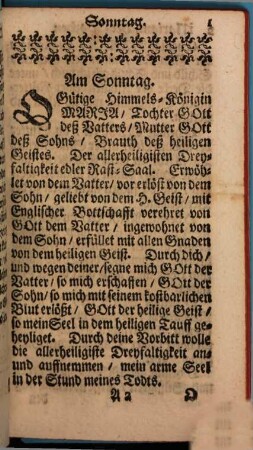 Sonntag. 1
Am Sonntag.
O Gütige Himmels-Königin
MARJA / Tochter GOtt
deß Vatters / Mutter GOtt
deß Sohns / Brauth deß heiligen
Geistes. Der allerheiligisten Drey-
faltigkeit edler Rast-Saal. Erwöh-
let von dem Vatter / vor erlöst von dem
Sohn / geliebt von dem H. Geist / mit
Englischer Bottschafft verehret von
GOtt dem Vatter / ingewohnet von
dem Sohn / erfüllet mit allen Gnaden
von dem heiligen Geist. Durch dich /
und wegen deiner / segne mich GOtt der
Vatter / so mich erschaffen / GOtt der
Sohn / so mich mit seinem kostbarlichen
Blut erlößt / GOtt der heilige Geist /
so mein Seel in dem heiligen Tauff ge-
heyliget. Durch deine Vorbitt wolle
die allerheiligiste Dreyfaltigkeit an-
und auffnemmen / mein arme Seel
in der Stund meines Todts.
A a O